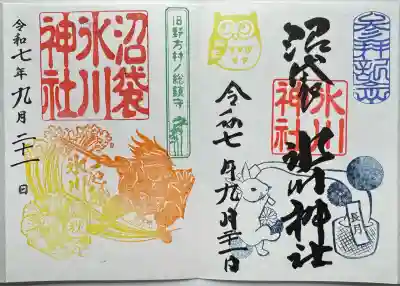 参拝新立
沼袋 氷川神社
氷川
神社
令和七年九月二十一日
長月
旧野方村ノ総鎮守
沼袋
氷川
神社
令和七年九月二十一日
氷川